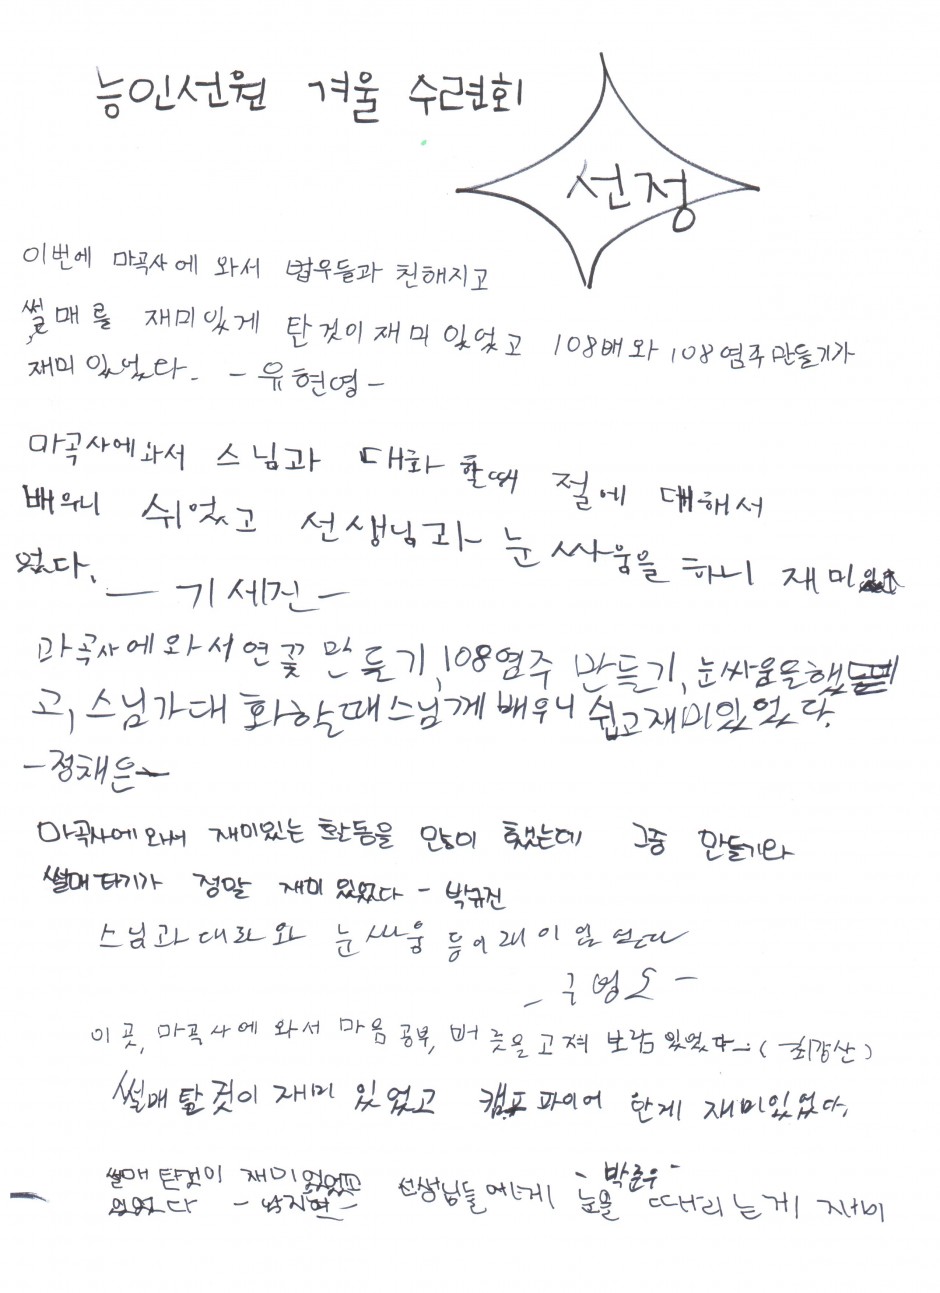 능인선원 겨울 수련회
선정
이번에 마곡사에 와서 법우들과 친해지고
썰매를 재미있게 탄것이 재미있었고 108배와 108염주만들기가
재미있었다. - 유현영 -
마곡사에와서 스님과 대화 할때 절에 대해서
배우니 쉬었고 선생님과 눈싸움을 하니 재미있
었다. - 기세진 -
마곡사에와서 연꽃만들기, 108염주 만들기, 눈싸움을했
고, 스님가대화할때스님께배우니 쉽고재미있었다.
- 정채은 -
마곡사에와서 재미있는 활동을 많이 했는데 그중 만들기와
썰매타기가 정말 재미있었다 - 박규진
스님과대화와 눈싸움 등이
이 곳, 마곡사에 와서 마음공부, 버릇을 고쳐 보람있었다.
썰매탈것이 재미있었고 캠프파이어 한게 재미있었다.
- 박준우 -
썰매탄것이 재미있었고 선생님들에게 눈을 때리는게 재미
있었다